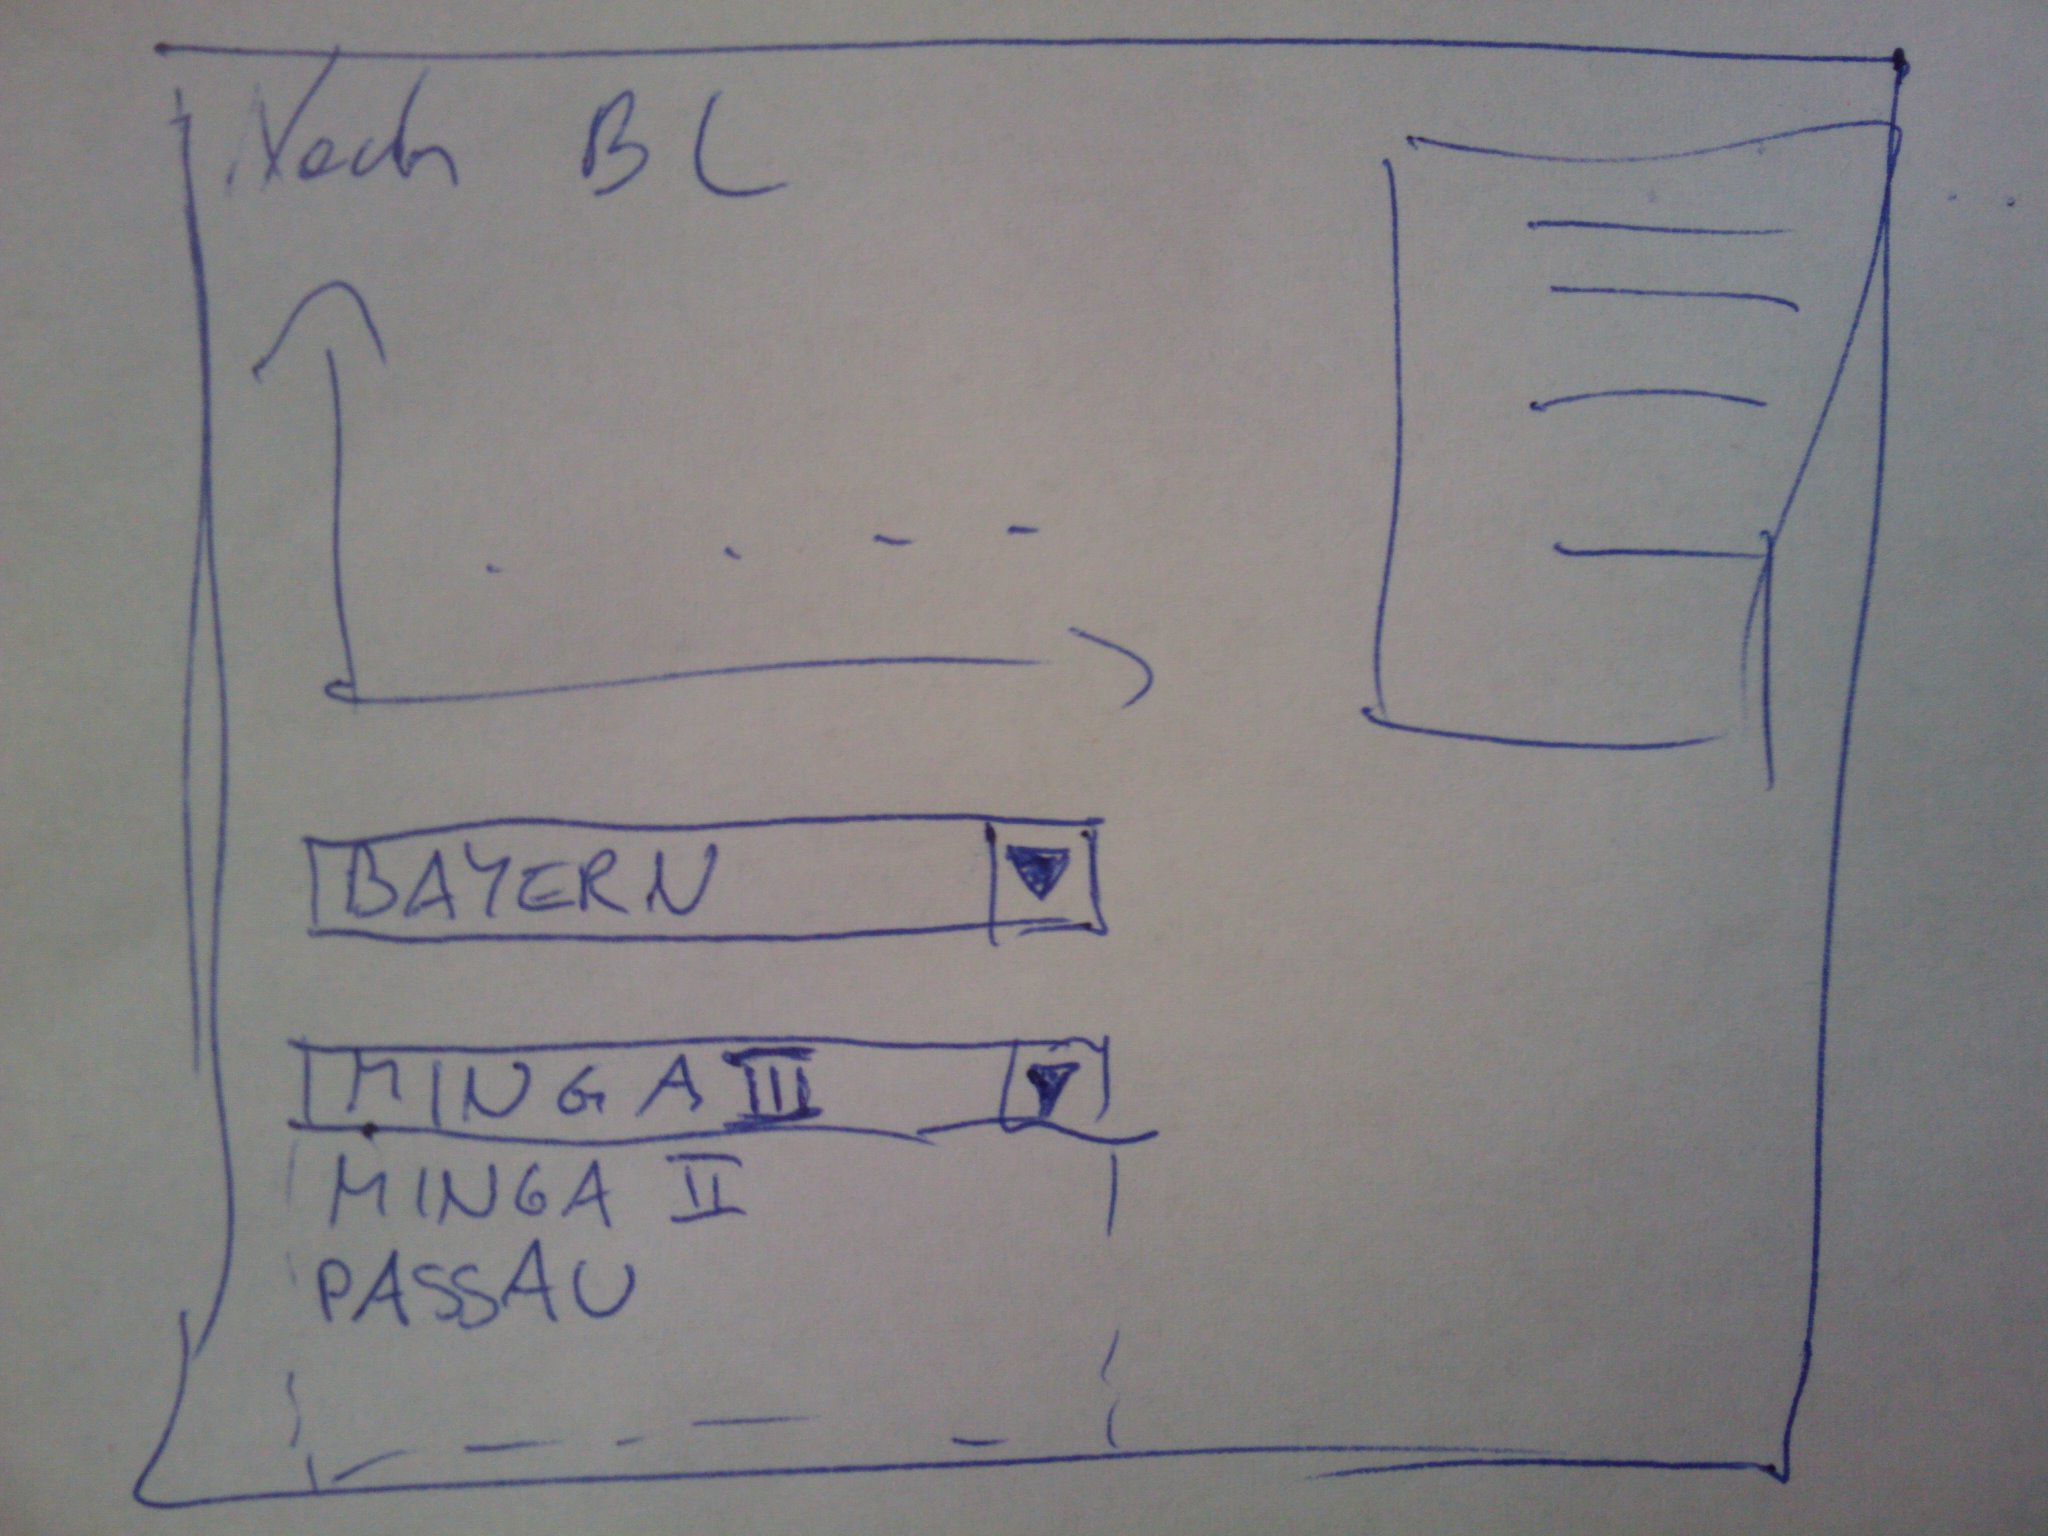 Nach BL
BAYERN
MINGA III
MINGA II
PASSAU